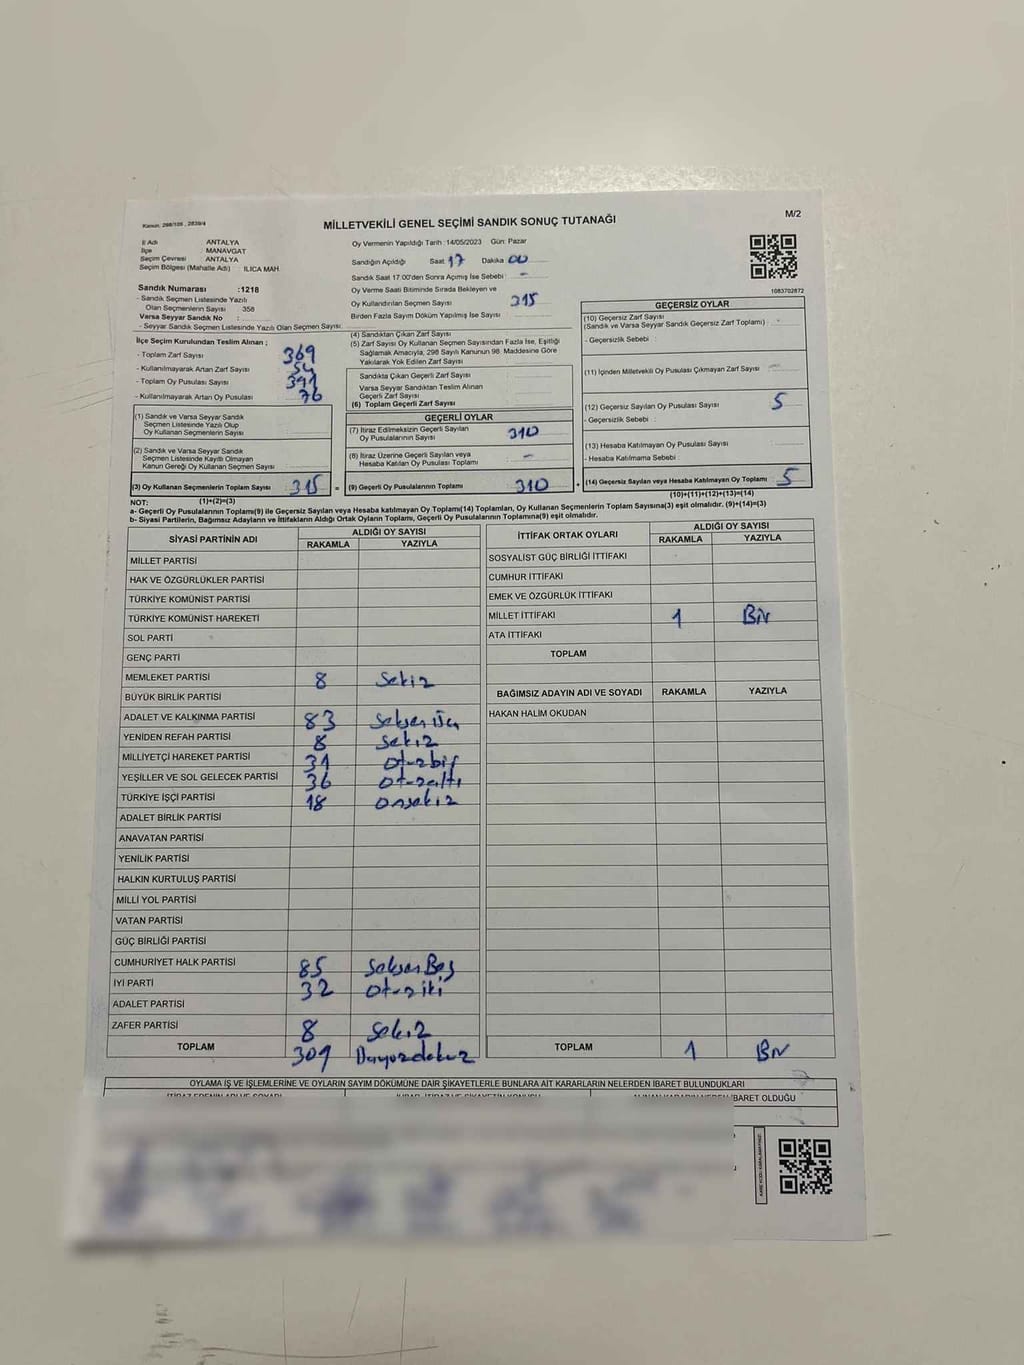 Kanun, 298/105 , 2839/4
MİLLETVEKİLİ GENEL SEÇİMİ SANDIK SONUÇ TUTANAĞI
M/2
İl Adı : ANTALYA
İlçe : MANAVGAT
Seçim Çevresi : ANTALYA
Seçim Bölgesi (Mahalle Adı) : ILICA MAH.
Sandık Numarası :1218
- Sandık Seçmen Listesinde Yazılı
Olan Seçmenlerin Sayısı : 358
Varsa Seyyar Sandık No :
- Seyyar Sandık Seçmen Listesinde Yazılı Olan Seçmen Sayısı:
Oy Vermenin Yapıldığı Tarih : 14/05/2023 Gün: Pazar
Sandığın Açıldığı Saat 17 Dakika 00
Sandık Saat 17.00'den Sonra Açılmış İse Sebebi : -
Oy Verme Saati Bitiminde Sırada Bekleyen ve
Oy Kullandırılan Seçmen Sayısı : 315
Birden Fazla Sayım Döküm Yapılmış İse Sayısı :
1083702872
İlçe Seçim Kurulundan Teslim Alınan ;
- Toplam Zarf Sayısı : 369
- Kullanılmayarak Artan Zarf Sayısı : 54
- Toplam Oy Pusulası Sayısı : 391
- Kullanılmayarak Artan Oy Pusulası : 76
(1) Sandık ve Varsa Seyyar Sandık
Seçmen Listesinde Yazılı Olup
Oy Kullanan Seçmenlerin Sayısı :
(2) Sandık ve Varsa Seyyar Sandık
Seçmen Listesinde Kayıtlı Olmayan
Kanun Gereği Oy Kullanan Seçmen Sayısı :
(3) Oy Kullanan Seçmenlerin Toplam Sayısı : 315 =
(1)+(2)=(3)
(4) Sandıktan Çıkan Zarf Sayısı :
(5) Zarf Sayısı Oy Kullanan Seçmen Sayısından Fazla İse, Eşitliği
Sağlamak Amacıyla, 298 Sayılı Kanunun 98. Maddesine Göre
Yakılarak Yok Edilen Zarf Sayısı :
Sandıkta Çıkan Geçerli Zarf Sayısı :
Varsa Seyyar Sandıktan Teslim Alınan
Geçerli Zarf Sayısı :
(6) Toplam Geçerli Zarf Sayısı :
GEÇERLİ OYLAR
(7) İtiraz Edilmeksizin Geçerli Sayılan
Oy Pusulalarının Sayısı : 310
(8) İtiraz Üzerine Geçerli Sayılan veya
Hesaba Katılan Oy Pusulası Toplamı : -
(9) Geçerli Oy Pusulalarının Toplamı : 310 +
GEÇERSİZ OYLAR
(10) Geçersiz Zarf Sayısı
(Sandık ve Varsa Seyyar Sandık Geçersiz Zarf Toplamı) :
- Geçersizlik Sebebi :
(11) İçinden Milletvekili Oy Pusulası Çıkmayan Zarf Sayısı :
(12) Geçersiz Sayılan Oy Pusulası Sayısı : 5
- Geçersizlik Sebebi :
(13) Hesaba Katılmayan Oy Pusulası Sayısı :
- Hesaba Katılmama Sebebi :
(14) Geçersiz Sayılan veya Hesaba Katılmayan Oy Toplamı : 5
(10)+(11)+(12)+(13)=(14)
NOT:
a- Geçerli Oy Pusulalarının Toplamı(9) ile Geçersiz Sayılan veya Hesaba katılmayan Oy Toplamı(14) Toplamları, Oy Kullanan Seçmenlerin Toplam Sayısına(3) eşit olmalıdır. (9)+(14)=(3)
b- Siyasi Partilerin, Bağımsız Adayların ve İttifakların Aldığı Ortak Oyların Toplamı, Geçerli Oy Pusulalarının Toplamına(9) eşit olmalıdır.
SİYASİ PARTİNİN ADI
ALDIĞI OY SAYISI
RAKAMLA YAZIYLA
MİLLET PARTİSİ
HAK VE ÖZGÜRLÜKLER PARTİSİ
TÜRKİYE KOMÜNİST PARTİSİ
TÜRKİYE KOMÜNİST HAREKETİ
SOL PARTİ
GENÇ PARTİ
MEMLEKET PARTİSİ 8 Sekiz
BÜYÜK BİRLİK PARTİSİ
ADALET VE KALKINMA PARTİSİ 83 Seksen üç
YENİDEN REFAH PARTİSİ 8 Sekiz
MİLLİYETÇİ HAREKET PARTİSİ 31 Otuzbir
YEŞİLLER VE SOL GELECEK PARTİSİ 36 Otuzaltı
TÜRKİYE İŞÇİ PARTİSİ 18 Onsekiz
ADALET BİRLİK PARTİSİ
ANAVATAN PARTİSİ
YENİLİK PARTİSİ
HALKIN KURTULUŞ PARTİSİ
MİLLİ YOL PARTİSİ
VATAN PARTİSİ
GÜÇ BİRLİĞİ PARTİSİ
CUMHURİYET HALK PARTİSİ 85 Seksen Beş
İYİ PARTİ 32 Otuziki
ADALET PARTİSİ
ZAFER PARTİSİ 8 Sekiz
TOPLAM 309 Üçyüzdokuz
İTTİFAK ORTAK OYLARI
ALDIĞI OY SAYISI
RAKAMLA YAZIYLA
SOSYALİST GÜÇ BİRLİĞİ İTTİFAKI
CUMHUR İTTİFAKI
EMEK VE ÖZGÜRLÜK İTTİFAKI
MİLLET İTTİFAKI 1 Bir
ATA İTTİFAKI
TOPLAM
BAĞIMSIZ ADAYIN ADI VE SOYADI RAKAMLA YAZIYLA
HAKAN HALİM OKUDAN
TOPLAM 1 Bir
OYLAMA İŞ VE İŞLEMLERİNE VE OYLARIN SAYIM DÖKÜMÜNE DAİR ŞİKAYETLERLE BUNLARA AİT KARARLARIN NELERDEN İBARET BULUNDUKLARI
İBARET OLDUĞU